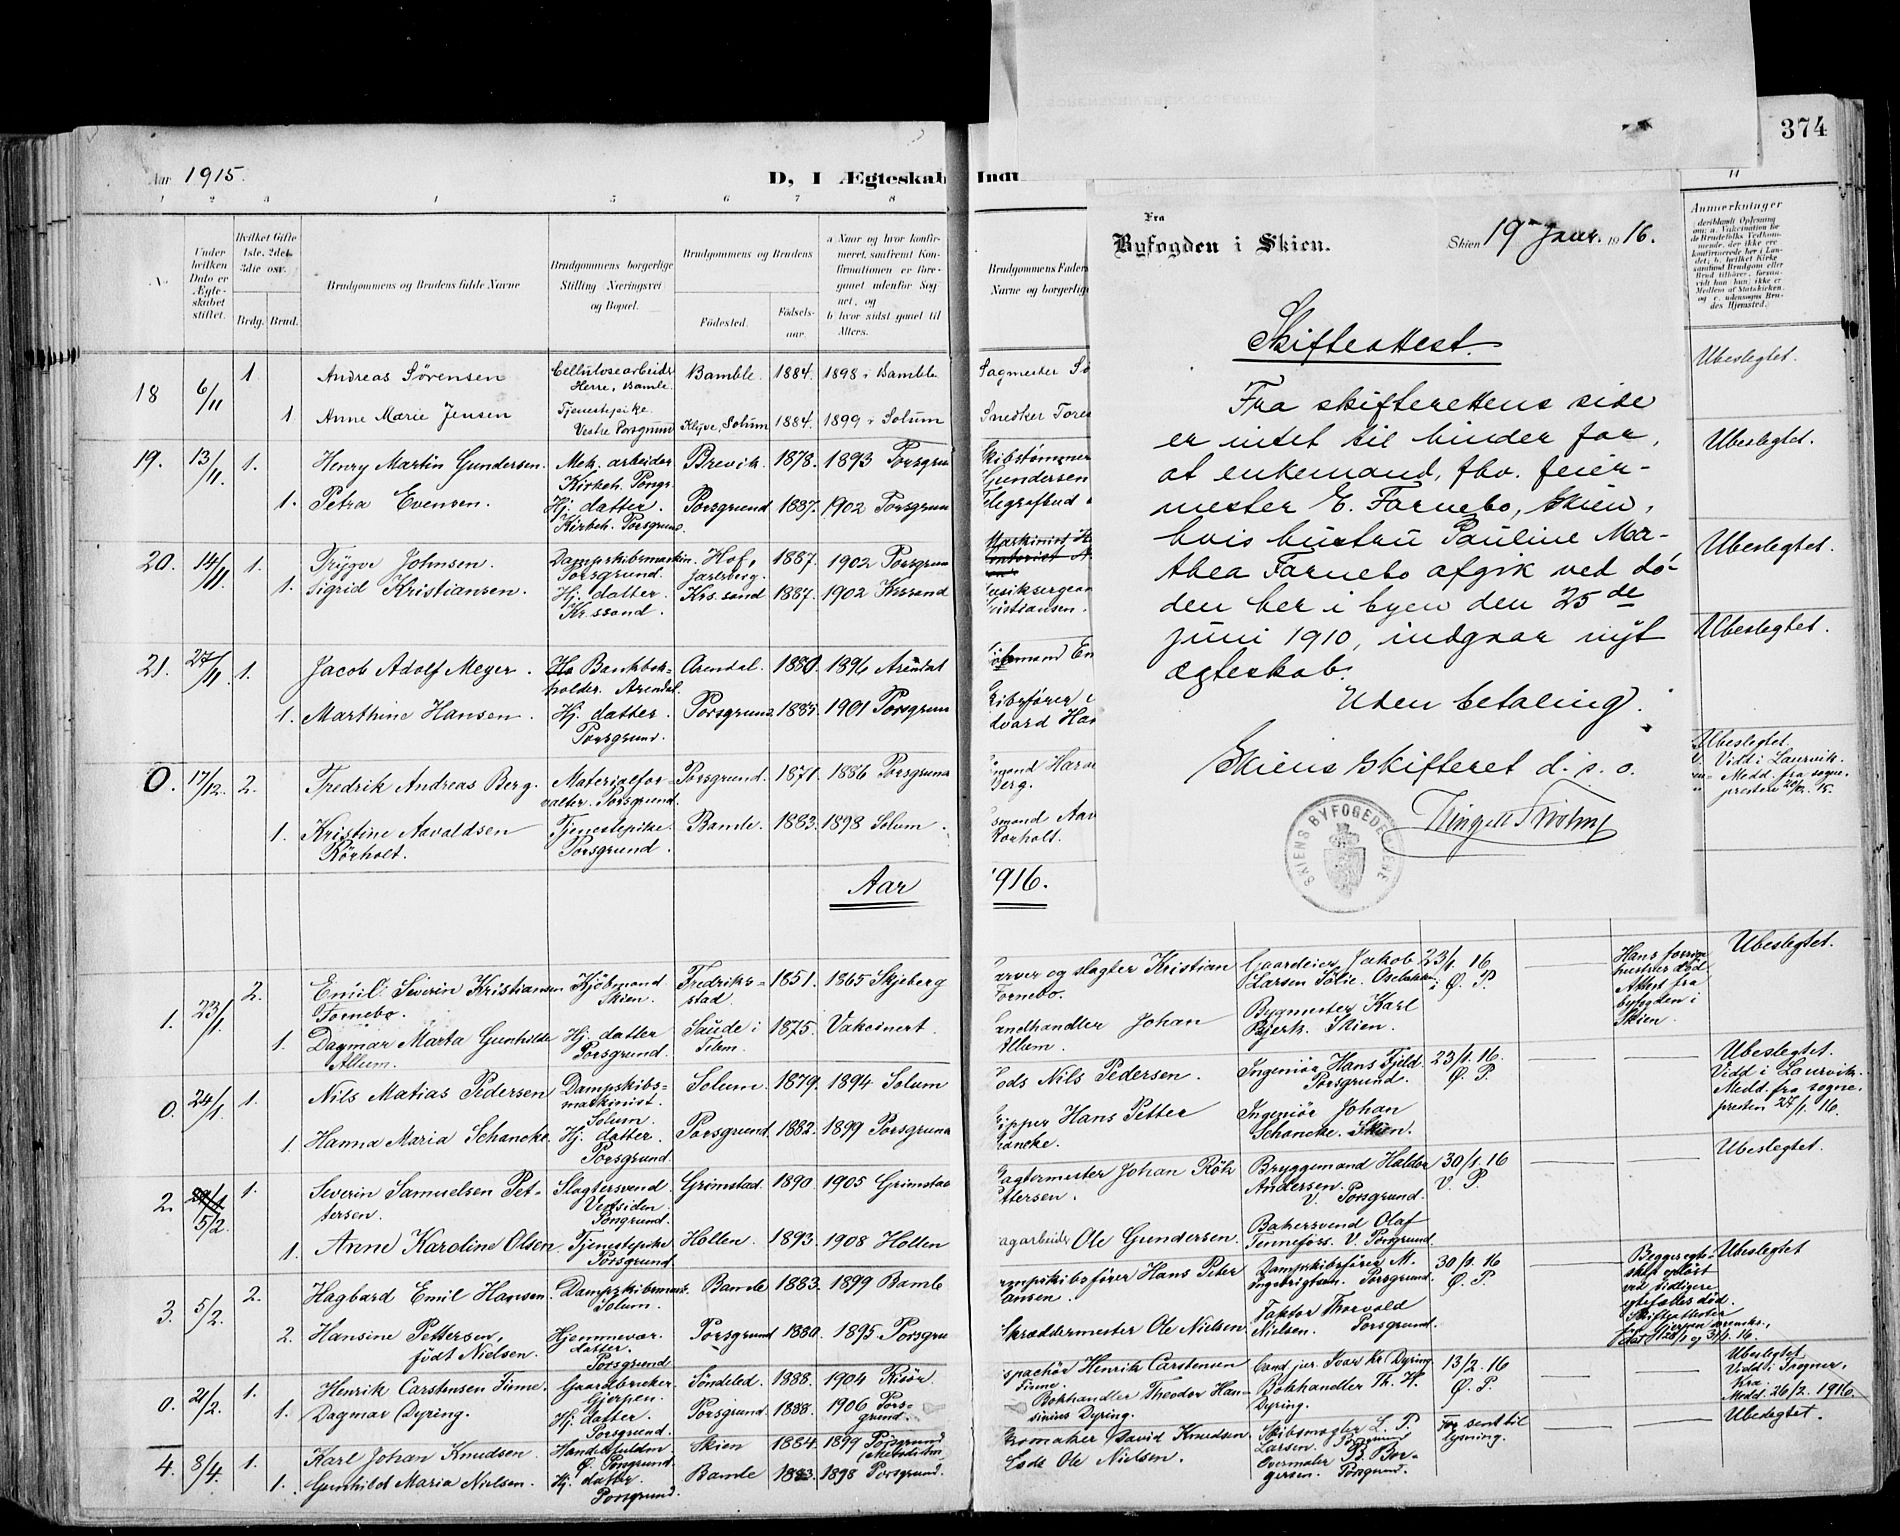 374
Aar 1915.
D, I Ægteskab Indt
1 2 3 4 5 6 7 8 11
No.
Under hvilken Dato er Ægteskabet stiftet.
Hvilket Gifte
1ste, 2det, 3die osv.
Brdg. Brud.
Brudgommens og Brudens fulde Navne
Brudgommens borgerlige Stilling Næringsvei og Bopæl.
Brudgommens og Brudens
Fødested.
Fødsels-aar.
a Naar og hvor konfirmeret, saafremt Konfirmationen er foregaaet udenfor Sognet, og
b hvor sidst gaaet til Alters.
Brudgommens Faders
Navne og borgerlig
Anmerkninger
18 6/11 1. Andreas Sörensen Cellulosearbeider Herre, Bamle. Bamble. 1884. 1898 i Bamble Sagmester Sö Ubeslegtet.
1. Anne Marie Jensen Tjenestepike Vestre Porsgrund Klyve, Solum 1884. 1899 i Solum Snedker Tores
19. 13/11 1. Henry Martin Gundersen. Mek. arbeider Kirkeh. Porsgr. Brevik. 1878. 1893 Porsgrun Skibstømmer Gundersen Ubeslegtet.
1. Petra Evensen. Hj. datter. Kirkeh. Porsgrund. Porsgrund 1887. 1902 Porsgrun Telegrafbud
20. 14/11 1. Trygve Johnsen. Dampskibsmaskin. Porsgrund. Hof, Jarlsberg. 1887. 1902 Porsgrun Maskinist H Ubeslegtet.
1. Sigrid Kristiansen. Hj. datter. Kr.ssand. Krs.sand 1887. 1902 Krssand Musiksergean Kristiansen.
21. 27/11 1. Jacob Adolf Meyer. Bankbokholder. Arendal. Arendal. 1880. 1896 Arendal Ubeslegtet.
1. Marthine Hansen. Hj. datter. Porsgrund. Porsgrund 1885. 1901 Porsgrun Skibsfører Edvard Han
0. 17/12. 2. Fredrik Andreas Berg. Materialforvalter. Porsgrund. Porsgrund. 1871. 1886 Porsgrund Berg. Ubeslegtet. Vidd i Laurvik. Medd. fra sognepresten
1. Kristine Aavaldsen Rörholt. Tjenestepike. Porsgrund. Bamle. 1883. 1898 Solum. Rorholt.
Aar 1916.
1. 23/1. 2. Emil Severin Kristiansen Fornebo. Kjöbmand Skien. Fredriksstad. 1851. 1865 Skjeberg Garver og slagter Kristian Fornebo. Gaardeier Jakob Larsen Solie. 23/1. 16 Ø. P. Hans forrige hustrus död Attest fra byfogden i Skien. Ubeslegtet.
1. Dagmar Marta Gunhilde Allum. Hj. datter Porsgrund. Saude i Telem. 1875. Vakcinert. Landhandler Johan Allum. Bygmester Karl Bjerk. Skien.
0. 24/1. 1. Nils Matias Pedersen Dampskibsmaskinist. Solum. Solum. 1879. 1894 Solum Lods Nils Pedersen. Ingeniör Hans Fjeld. Porsgrund. 23/1. 16. Ø. P. Ubeslegtet. Vidd i Laurvik. Medd. fra sognepresten 27/1. 16.
1. Hanna Maria Schancke. Hj. datter. Porsgrund. Porsgrund 1882. 1899 Porsgrund Skipper Hans Petter Schancke. Ingeniör Johan Schancke. Skien.
2. 5/2. 1. Severin Samuelsen Pettersen. Slagtersvend. Vestsiden Porsgrund. Grimstad. 1890. 1905 Grimstad Slagtermester Johan Rök Pettersen. Bryggemand Haldor Andersen. V. Porsgrund. 30/1. 16 V. P. Ubeslegtet.
1. Anne Karoline Olsen. Tjenestepike Porsgrund. Hollen. 1893. 1908 Hollen Sagarbeider Ole Gundersen. Bakersvend Olaf Tennefoss. V. Porsgrund
3. 5/2. 2. Hagbard Emil Hansen. Dampskibsmask. Solum. Bamle 1883. 1899 Bamle Dampskibsfører Hans Peter Hansen. Dampskibsfører M. Ingebrigtsen. Porsgrund. 30/1. 16 Ø. P. Begges egteskap oplöst ved tidligere egtefælles död. Ubeslegtet
2. Hansine Pettersen, födt Nielsen. Hjemmevær. datter. Porsgrund. Porsgrund 1880. 1895 Porsgru Skræddermester Ole Nielsen. Faktor Thorvald Nielsen. Porsgrund.
0. 21/2. 1. Henrik Carstensen Finne. Gaardbruker. Gjerpen. Söndeled. 1888. 1904 Risör Dispachör Henrik Carstensen Finne Cand. jur. Ivar Kr. Dyring. 13/2. 16 Ø. P. Ubeslegtet. Vidd i Frogner, Kra. Medd. 26/2. 1916.
1. Dagmar Dyring. Hj. datter. Porsgrund. Porsgrund. 1888. 1906 Porsgrund. Bokhandler Theodor Hansinius Dyring. Bokhandler Th. H. Dyring.
4. 8/4. 1. Karl Johan Knudsen. Handelsfuldm. Ø. Porsgrund. Skien 1884. 1899 Porsgrund David Knudsen. Skibsmægler L. P. Larsen. Porsgrund For sent til lysning. Ubeslegtet.
1. Gunhild Maria Nielsen. Hj. datter. Porsgrund. Bamle 1883. 1898 Porsgrund. Lods Ole Nielsen. Overmaler B. Borgersen. Porsgrund.
Fra
Byfogden i Skien.
Skien 19 Janr. 1916.
Skifteattest.
Fra skifterettens side
er intet til hinder for,
at enkemand, fhv. feier-
mester E. Fornebo, Skien,
hvis hustru Pauline Ma-
thea Fornebo afgik ved dö-
den her i byen den 25de
juni 1910, indgaar nyt
ægteskab.
Uden betaling.
Skiens skifteret d. s. o.
SKIENS BYFOGEDEMBEDE